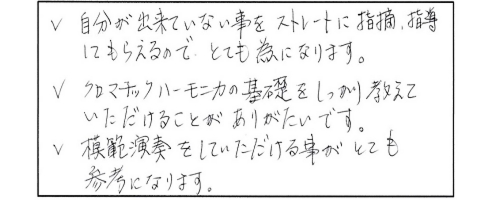 ✓ 自分が出来ていない事をストレートに指摘、指導
にもらえるので、とても為になります。
✓ クロマチックハーモニカの基礎をしっかり教えて
いただけることがありがたいです。
✓ 模範演奏をしていただける事がとても
参考になります。